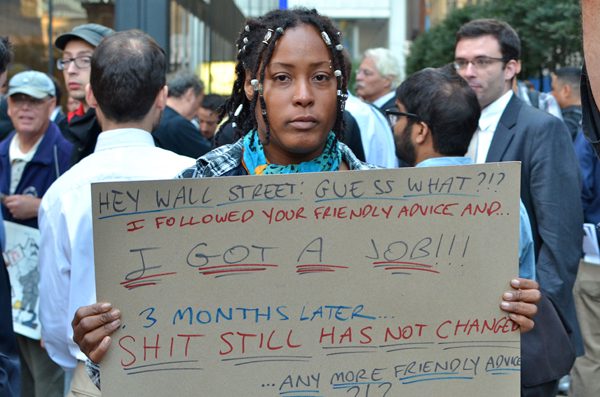 HEY WALL STREET: GUESS WHAT?!?
I FOLLOWED YOUR FRIENDLY ADVICE AND...
I GOT A JOB!!!
..3 MONTHS LATER...
SHIT STILL HAS NOT CHANGED
...ANY MORE FRIENDLY ADVICE
?!?